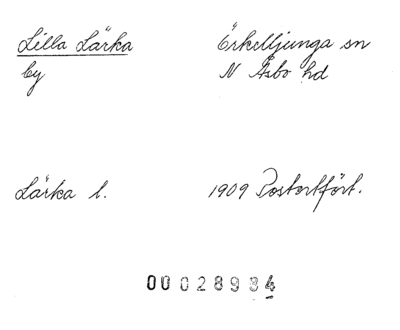 Lilla Lärka Örkelljunga sn
by N Åsbo hd
Lärka l. 1909 Postortfört.
00028984